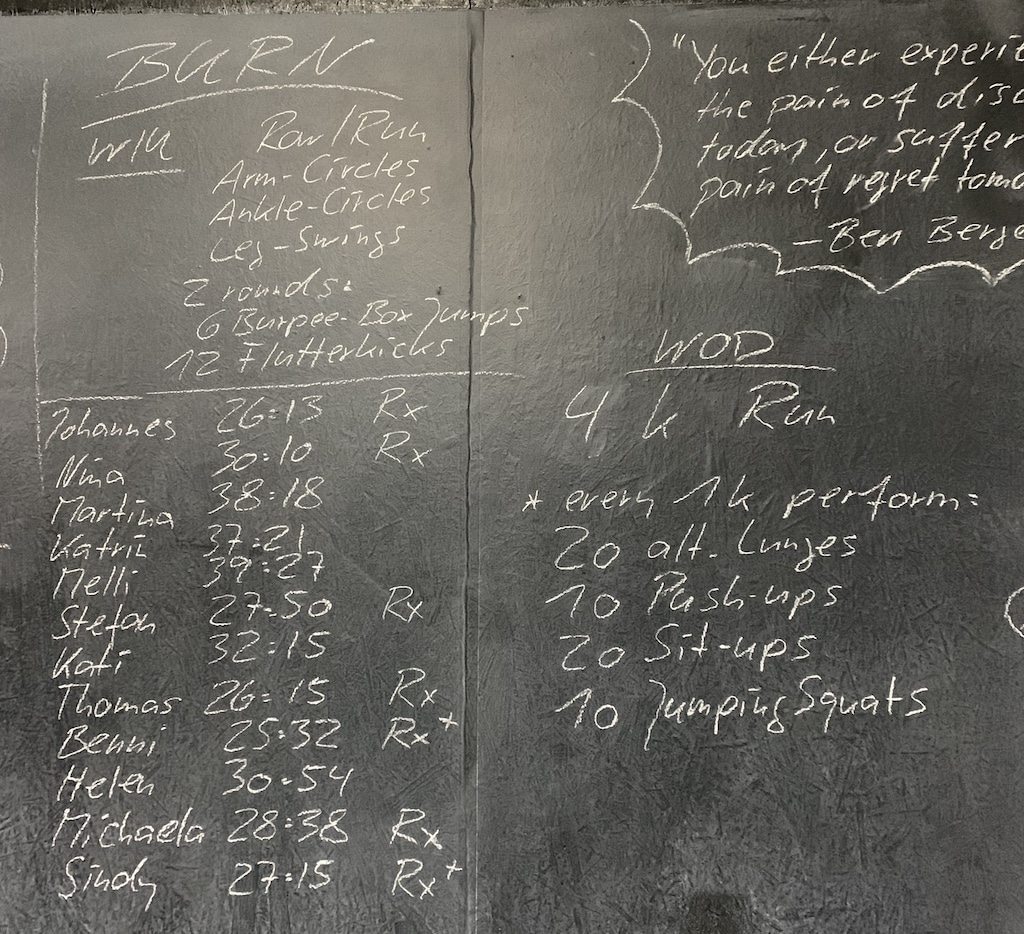 BURN
W/U Row/Run
Arm-Circles
Ankle-Circles
Leg-Swings
2 rounds:
6 Burpee-Box Jumps
12 Flutterkicks
Johannes 26:13 Rx
Nina 30:10 Rx
Martina 38:18
Katrin 37:21
Melli 39:27
Stefan 27:50 Rx
Kati 32:15
Thomas 26:15 Rx
Benni 25:32 Rx+
Helen 30:54
Michaela 28:38 Rx
Sindy 27:15 Rx+
"You either experie
the pain of disc
today, or suffer
pain of regret tomo
-Ben Berge
WOD
4 k Run
* every 1k perform:
20 alt. Lunges
10 Push-ups
20 Sit-ups
10 Jumping Squats